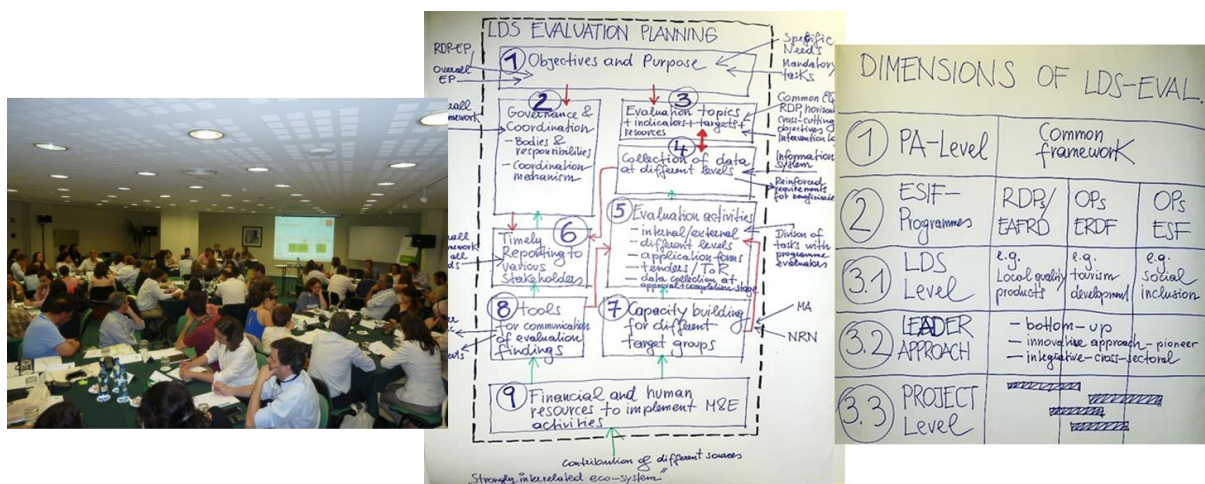 LDS EVALUATION PLANNING
RDP-EP
Overall
EP
1 Objectives and Purpose
Specific
Needs
Mandatory
tasks
2
Governance &
Coordination
- Bodies &
responsibilities
- Coordination
mechanism
3
Evaluation topics
+ indicators + targets +
resources
Common EQ
RDP, horizon
cross-cutting
objectives
Intervention Lo
4
Collection of data
at different levels
Information
system
Reinforced
requirements
for beneficiaries
5 Evaluation activities
- internal/external
- different levels
- application forms
- tenders / ToR
- data collection at
approval + completion stage
Division of
tasks with
programme
evaluators
6
Timely
Reporting to
various
Stakeholders
7 Capacity building
for different
target groups
MA
NRN
8 tools
for communication
of evaluation
findings
9 Financial and human
resources to implement M&E
activities
contribution of different sources
"Strongly interrelated eco-system"
DIMENSIONS OF LDS-EVAL.
1 PA-Level
Common
framework
2 ESIF-
Programmes
RDPs/
EAFRD
OPs
ERDF
OPs
ESF
3.1 LDS
Level
e.g.
Local quality
products
e.g.
tourism
development
e.g.
Social
inclusion
3.2 LEADER
APPROACH
- bottom-up
- innovative approach - pioneer
- integrative-cross-sectoral
3.3 PROJECT
Level